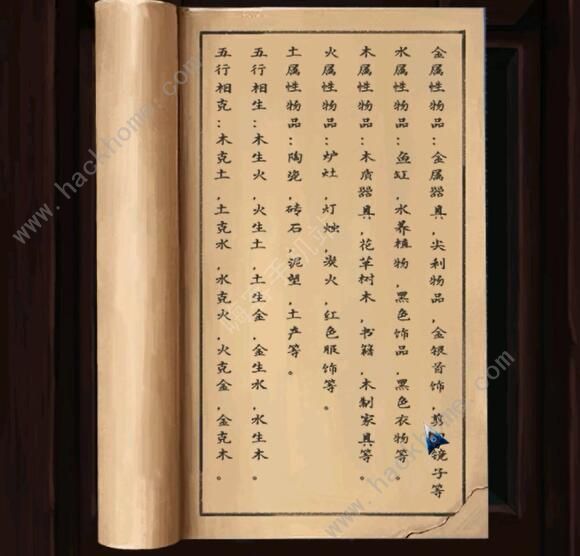 金属性物品：金属器具，尖利物品，金银首饰，剪镜子等
水属性物品：鱼缸，水养植物，黑色饰品，黑色衣物等。
木属性物品：木质器具，花草树木，书籍，木制家具等。
火属性物品：炉灶，灯烛，炭火，红色服饰等。
土属性物品：陶瓷，砖石，泥塑，土产等。
五行相生：木生火，火生土，土生金，金生水，水生木。
五行相克：木克土，土克水，水克火，火克金，金克木。
www.hackhome.com
嗨客手机站
www.hackhome.com
www.hackhome.com